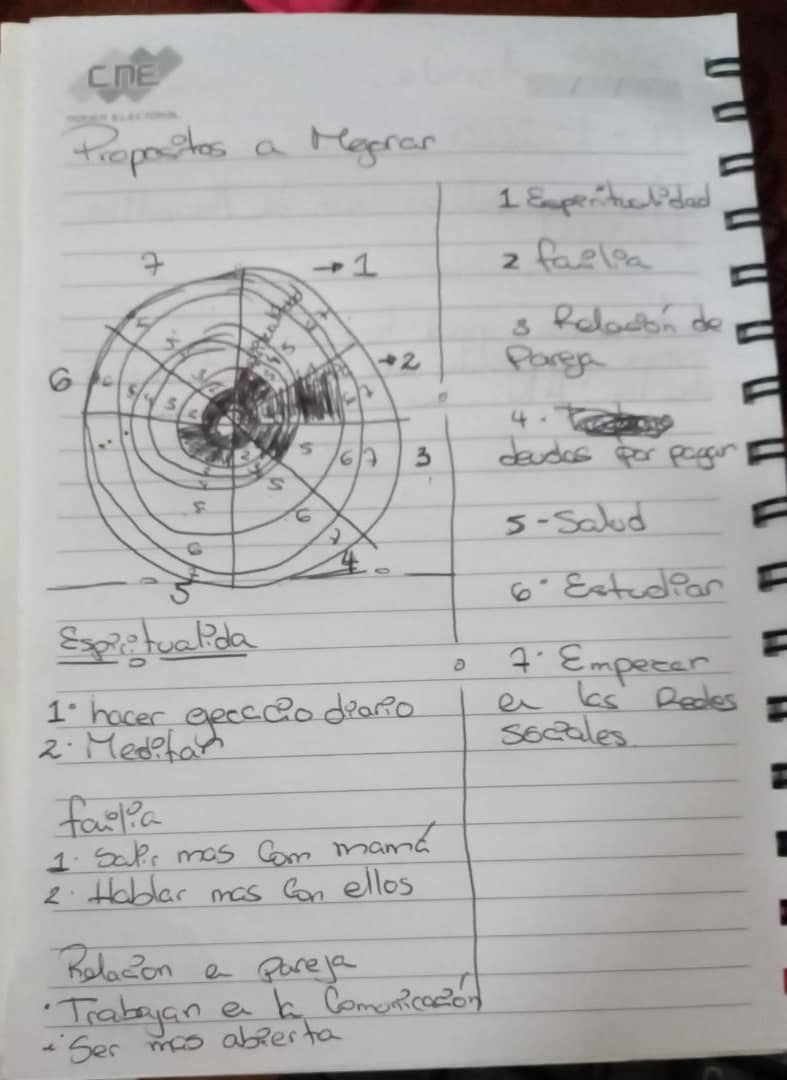 CNE
PODER ELECTORAL
Propositos a Megorar
7
→ 1
→ 2
6
3
4
5
1 Esperitualidad
2 failia
3 Relación de
Pareja
4.
deudas por pagar
5 - Salud
6. Estudiar
7. Empezar
en las Redes
sociales.
Espiritualida
1. hacer ejeccio diario
2. Meditar
failia
1. Salir mas Com mamá
2. Hablar mas con ellos
Relacion e pareja
• Trabajan en la Comunicación
• Ser mas abierta